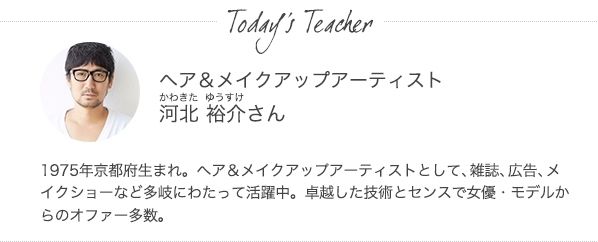 Today's Teacher
ヘア＆メイクアップアーティスト
かわきた ゆうすけ
河北 裕介さん
1975年京都府生まれ。ヘア＆メイクアップアーティストとして、雑誌、広告、メ
イクショーなど多岐にわたって活躍中。卓越した技術とセンスで女優・モデルか
らのオファー多数。